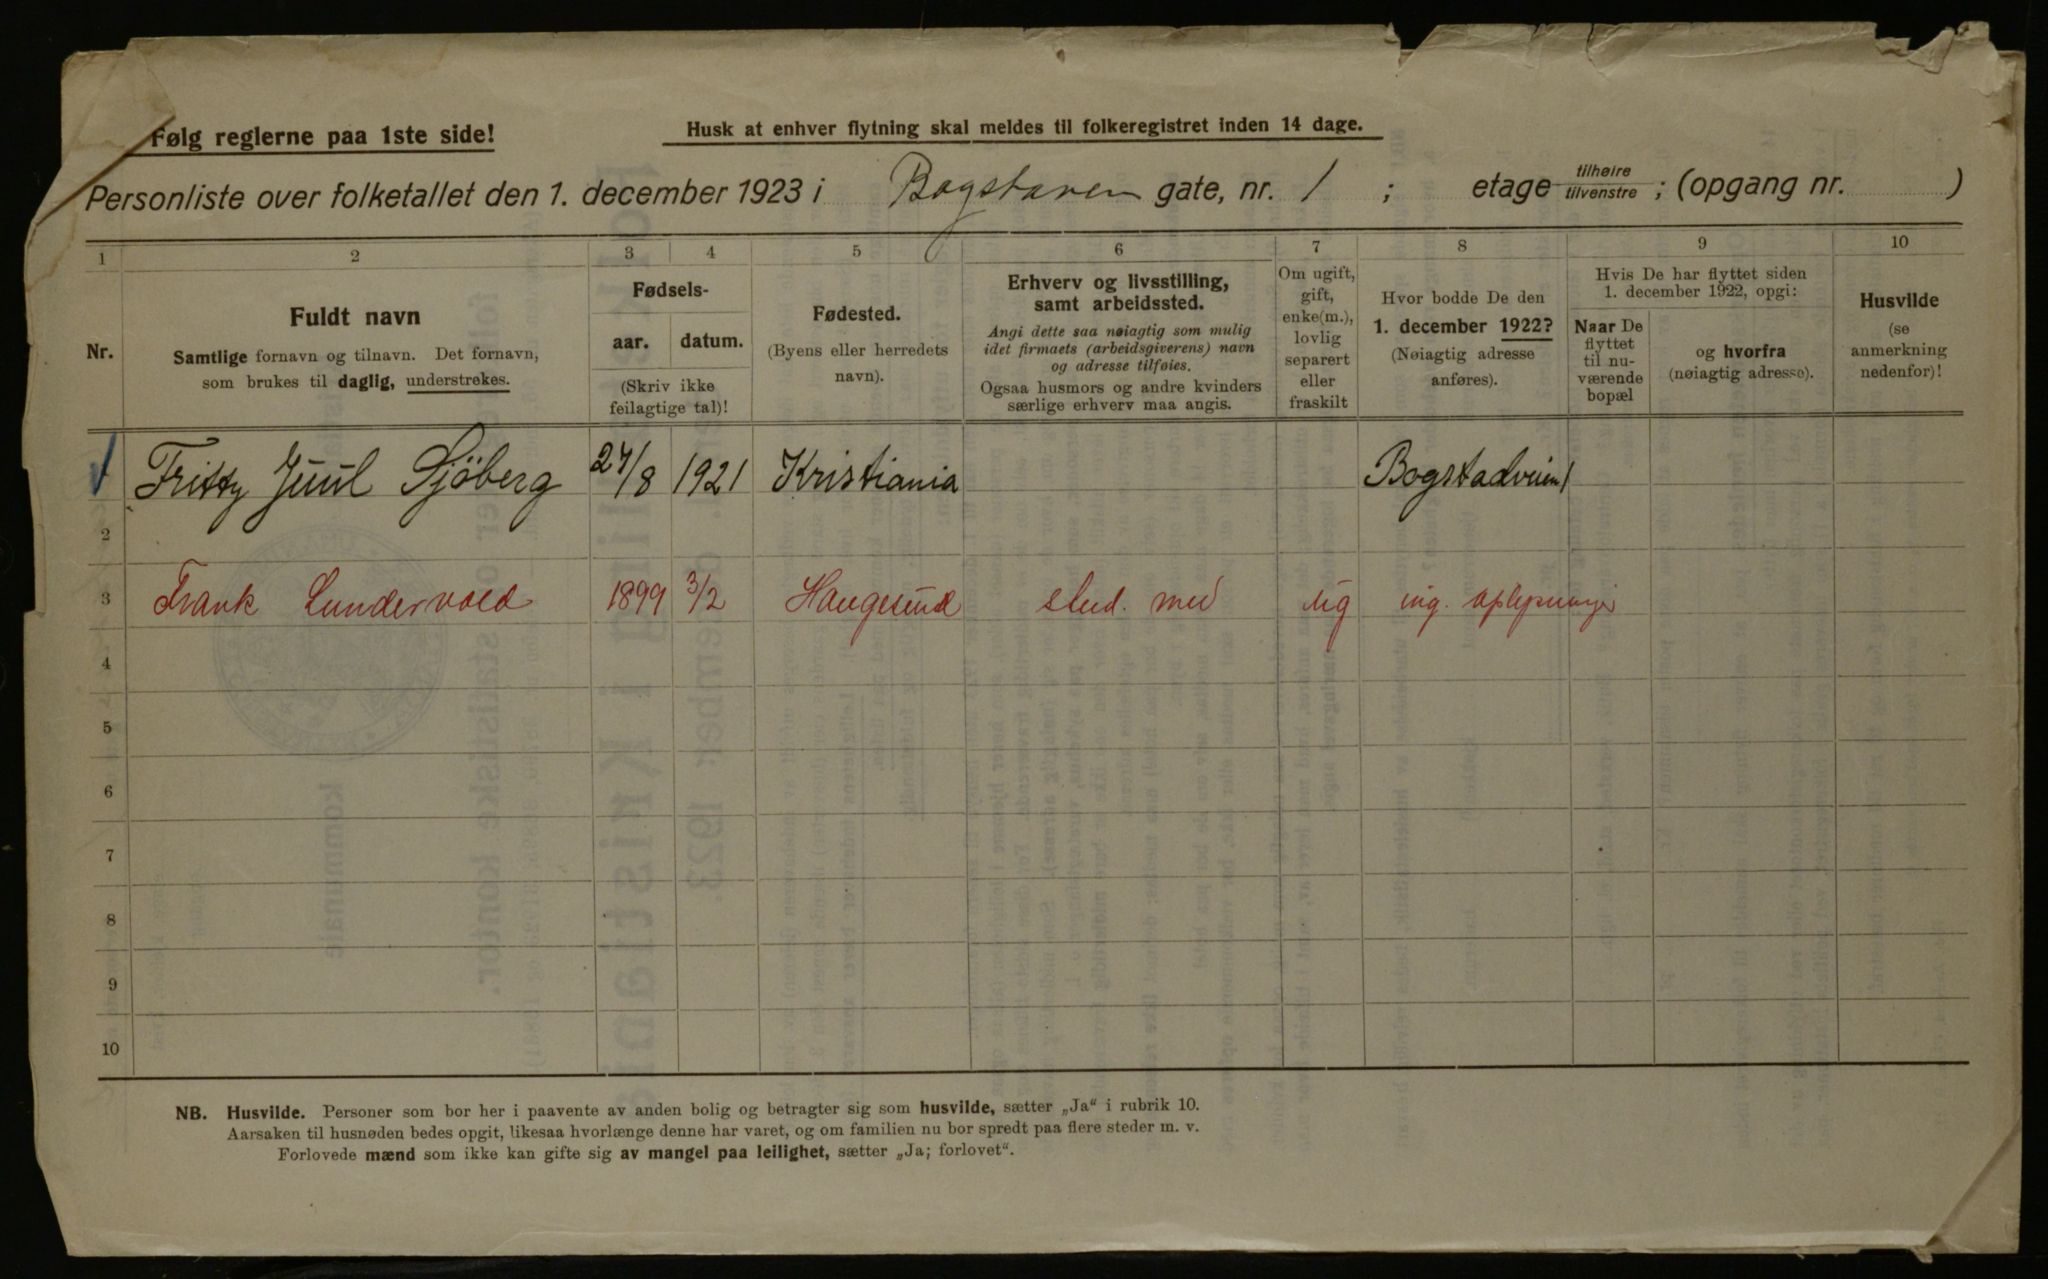 Følg reglerne paa 1ste side!
Husk at enhver flytning skal meldes til folkeregistret inden 14 dage.
Personliste over folketallet den 1. december 1923 i Bogstaveien gate, nr. 1 ; etage tilhøire tilvenstre ; (opgang nr. )
1 2 3 4 5 6 7 8 9 10
Nr.
Fuldt navn
Samtlige fornavn og tilnavn. Det fornavn,
som brukes til daglig, understrekes.
Fødsels-
aar. datum.
(Skriv ikke
feilagtige tal)!
Fødested.
(Byens eller herredets
navn).
Erhverv og livsstilling,
samt arbeidssted.
Angi dette saa nøiagtig som mulig
idet firmaets (arbeidsgiverens) navn
og adresse tilføies.
Ogsaa husmors og andre kvinders
særlige erhverv maa angis.
Om ugift,
gift,
enke(m.),
lovlig
separert
eller
fraskilt
Hvor bodde De den
1. december 1922?
(Nøiagtig adresse
anføres).
Hvis De har flyttet siden
1. december 1922, opgi:
Naar De
flyttet
til nu-
værende
bopæl
og hvorfra
(nøiagtig adresse).
Husvilde
(se
anmerkning
nedenfor)!
1 Fritty Juul Sjöberg 24/8 1921 Kristiania Bogstadveien 1
2
3 Frank Lundervold 1899 3/2 Haugesund stud. med ug ing. oplysninger
4
5
6
7
8
9
10
NB. Husvilde. Personer som bor her i paavente av anden bolig og betragter sig som husvilde, sætter „Ja“ i rubrik 10.
Aarsaken til husnøden bedes opgit, likesaa hvorlænge denne har varet, og om familien nu bor spredt paa flere steder m. v.
Forlovede mænd som ikke kan gifte sig av mangel paa leilighet, sætter „Ja; forlovet“.